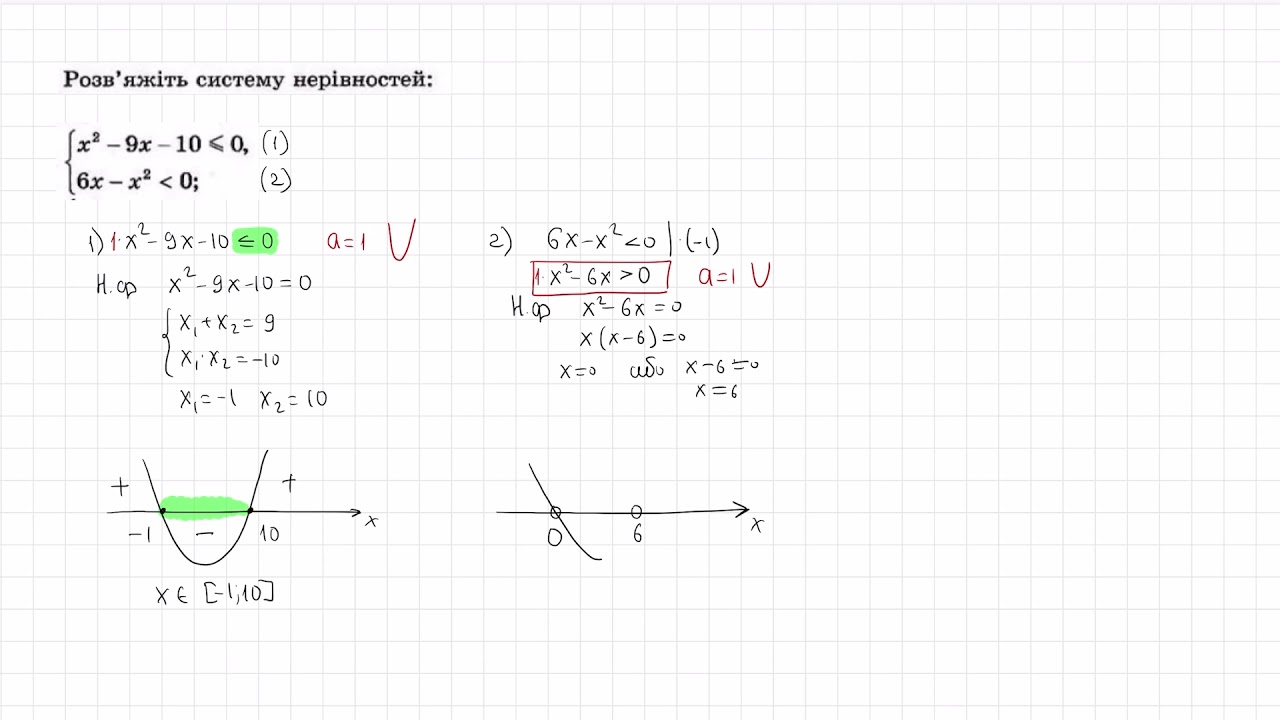 Розв'яжіть систему нерівностей:
x² − 9x − 10 ⩽ 0, (1)
6x − x² < 0; (2)
1) 1·x² − 9x − 10 ≤ 0 a = 1
Н.ф x² − 9x − 10 = 0
x₁ + x₂ = 9
x₁ · x₂ = −10
x₁ = −1 x₂ = 10
+ +
−1 − 10 x
x ∈ [−1; 10]
2) 6x − x² < 0 | ·(−1)
1·x² − 6x > 0 a = 1
Н.ф x² − 6x = 0
x(x − 6) = 0
x = 0 або x − 6 = 0
x = 6
0 6 x